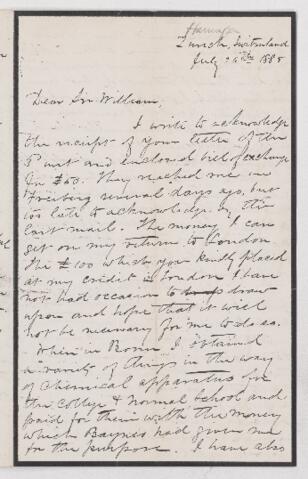 Harrington
Zurich, Switzerland
July 24th 1885
Dear Sir William,
I write to acknowledge
the receipt of your letter of the
5th inst and enclosed bill of exchange
for £60. They reached me in
Freiberg several days ago, but
too late to acknowledge by the
last mail. The money I can
get on my return to London.
The £100 which you kindly placed
at my credit in London I have
not had occasion to draw
upon and hope that it will
not be necessary for me to do so.
When in Bonn I obtained
a variety of things in the way
of chemical apparatus for
the College & Normal School and
paid for them with the money
which Baynes had given me
for the purpose. I have also